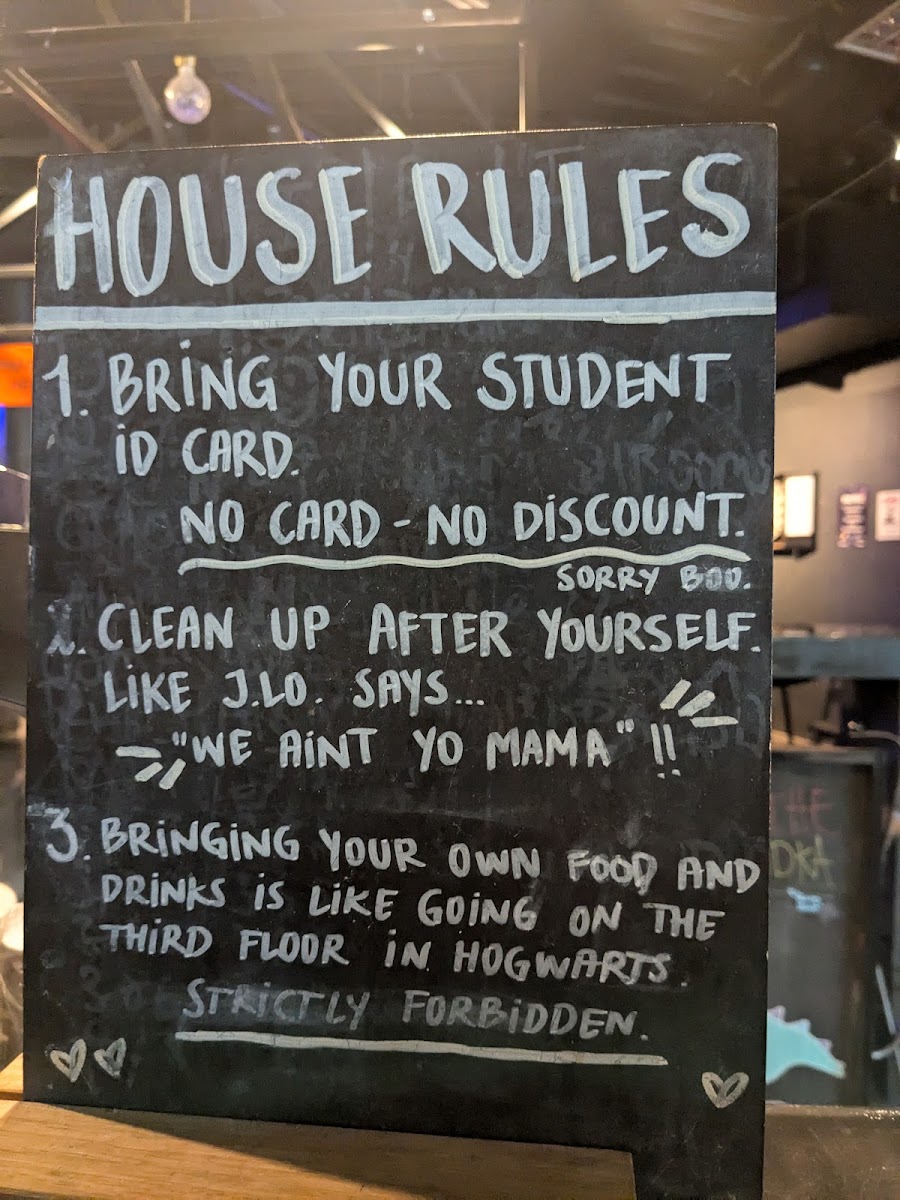 HOUSE RULES
1. BRING YOUR STUDENT
ID CARD.
NO CARD - NO DISCOUNT.
SORRY BOO.
2. CLEAN UP AFTER YOURSELF.
LIKE J.LO. SAYS...
"WE AINT YO MAMA" !!
3. BRINGING YOUR OWN FOOD AND
DRINKS IS LIKE GOING ON THE
THIRD FLOOR IN HOGWARTS.
STRICTLY FORBIDDEN.
THE